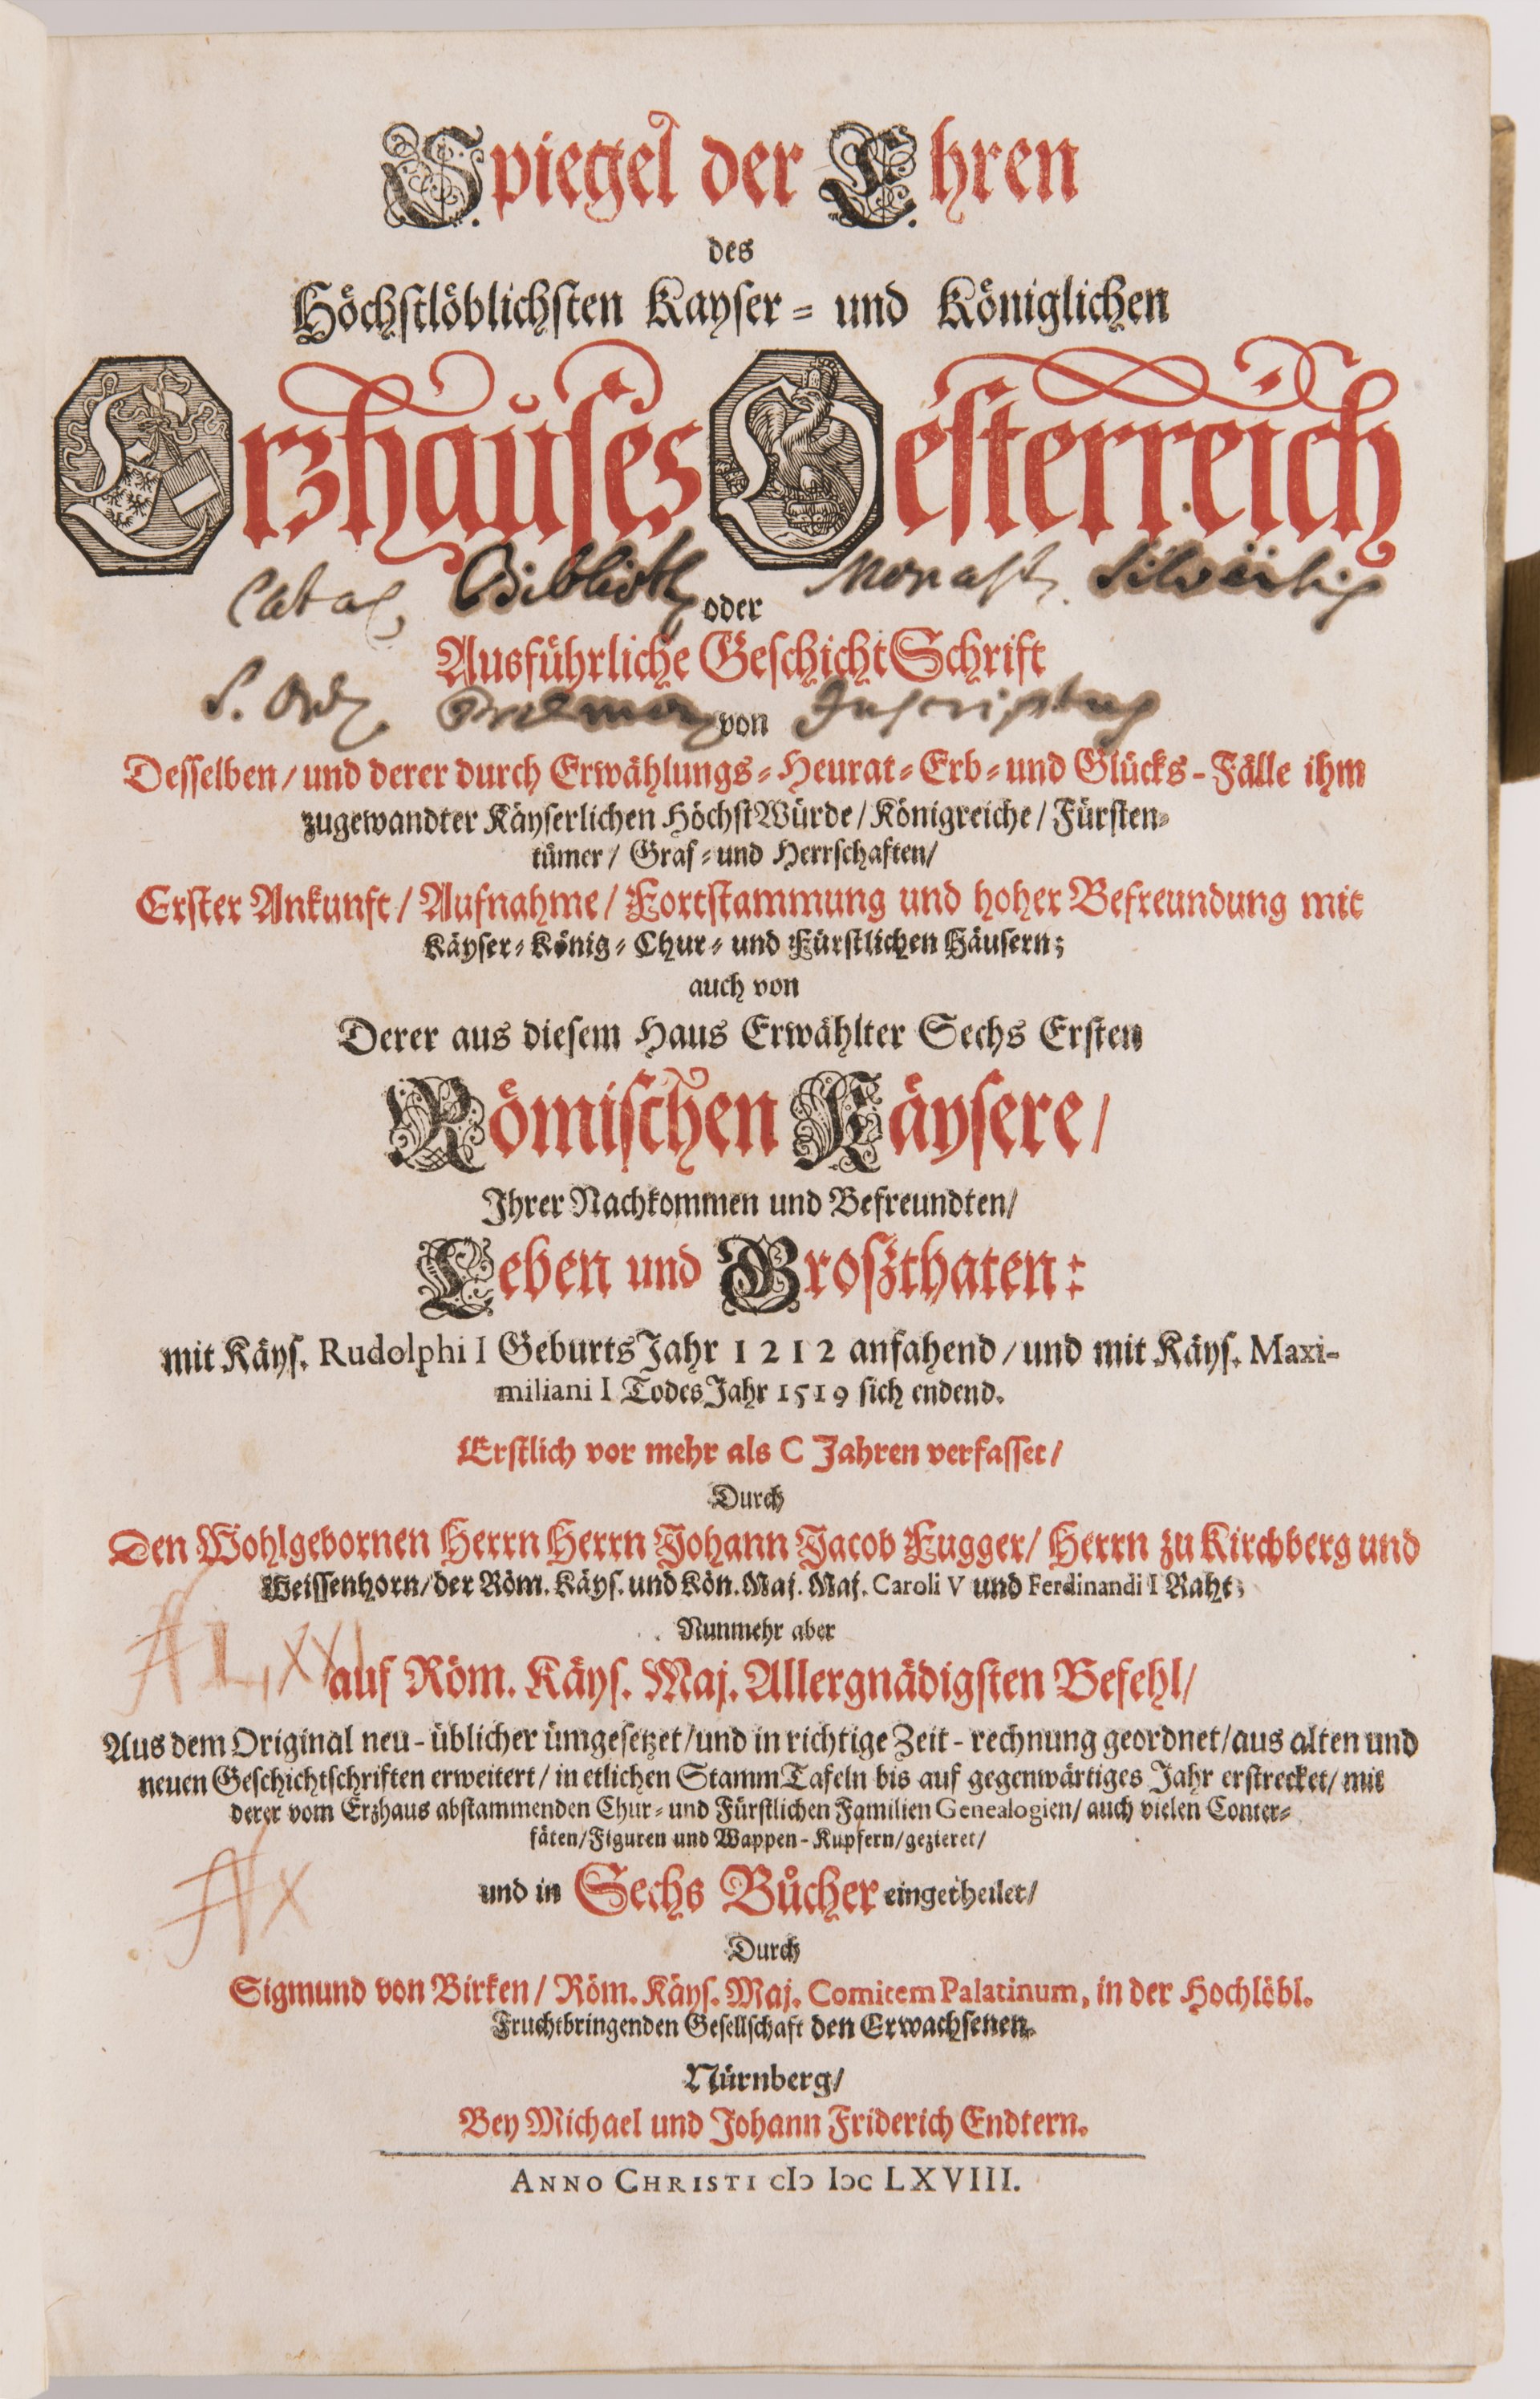 Spiegel der Ehren
des
Höchstlöblichsten Kayser- und Königlichen
Erzhauses Oesterreich
Catal. Biblioth. Monast.
oder
Ausführliche GeschichtSchrift
S. Ord. Inscriptus
von
Desselben/ und derer durch Erwählungs-Heurat-Erb-und Glücks-Fälle ihm
zugewandter Käyserlichen HöchstWürde/ Königreiche/ Fürsten-
tümer/ Graf-und Herrschaften/
Erster Ankunft/ Aufnahme/ Fortstammung und hoher Befreundung mit
Käyser-König-Chur-und Fürstlichen Häusern;
auch von
Derer aus diesem Haus Erwählter Sechs Ersten
Römischen Käysere/
Ihrer Nachkommen und Befreundten/
Leben und Großthaten:
mit Käys. Rudolphi I GeburtsJahr 1212 anfahend/ und mit Käys. Maxi-
miliani I TodesJahr 1519 sich endend.
Erstlich vor mehr als C Jahren verfasset/
Durch
Den Wohlgebornen Herrn Herrn Johann Jacob Fugger/ Herrn zu Kirchberg und
Weissenhorn/ der Röm. Käys. und Kön. Maj. Maj. Caroli V und Ferdinandi I Raht;
Nunmehr aber
auf Röm. Käys. Maj. Allergnädigsten Befehl/
Aus dem Original neu-üblicher ümgesetzet/ und in richtige Zeit-rechnung geordnet/ aus alten und
neuen Geschichtschriften erweitert/ in etlichen StammTafeln bis auf gegenwärtiges Jahr erstrecket/ mit
derer vom Erzhaus abstammenden Chur-und Fürstlichen Familien Genealogien/ auch vielen Conter-
fäten/ Figuren und Wappen-Kupfern/ gezieret/
und in Sechs Bůcher eingetheilet/
Durch
Sigmund von Birken/ Röm. Käys. Maj. Comitem Palatinum, in der Hochlöbl.
Fruchtbringenden Gesellschaft den Erwachsenen.
Nürnberg/
Bey Michael und Johann Friderich Endtern.
ANNO CHRISTI cIɔ Iɔc LXVIII.